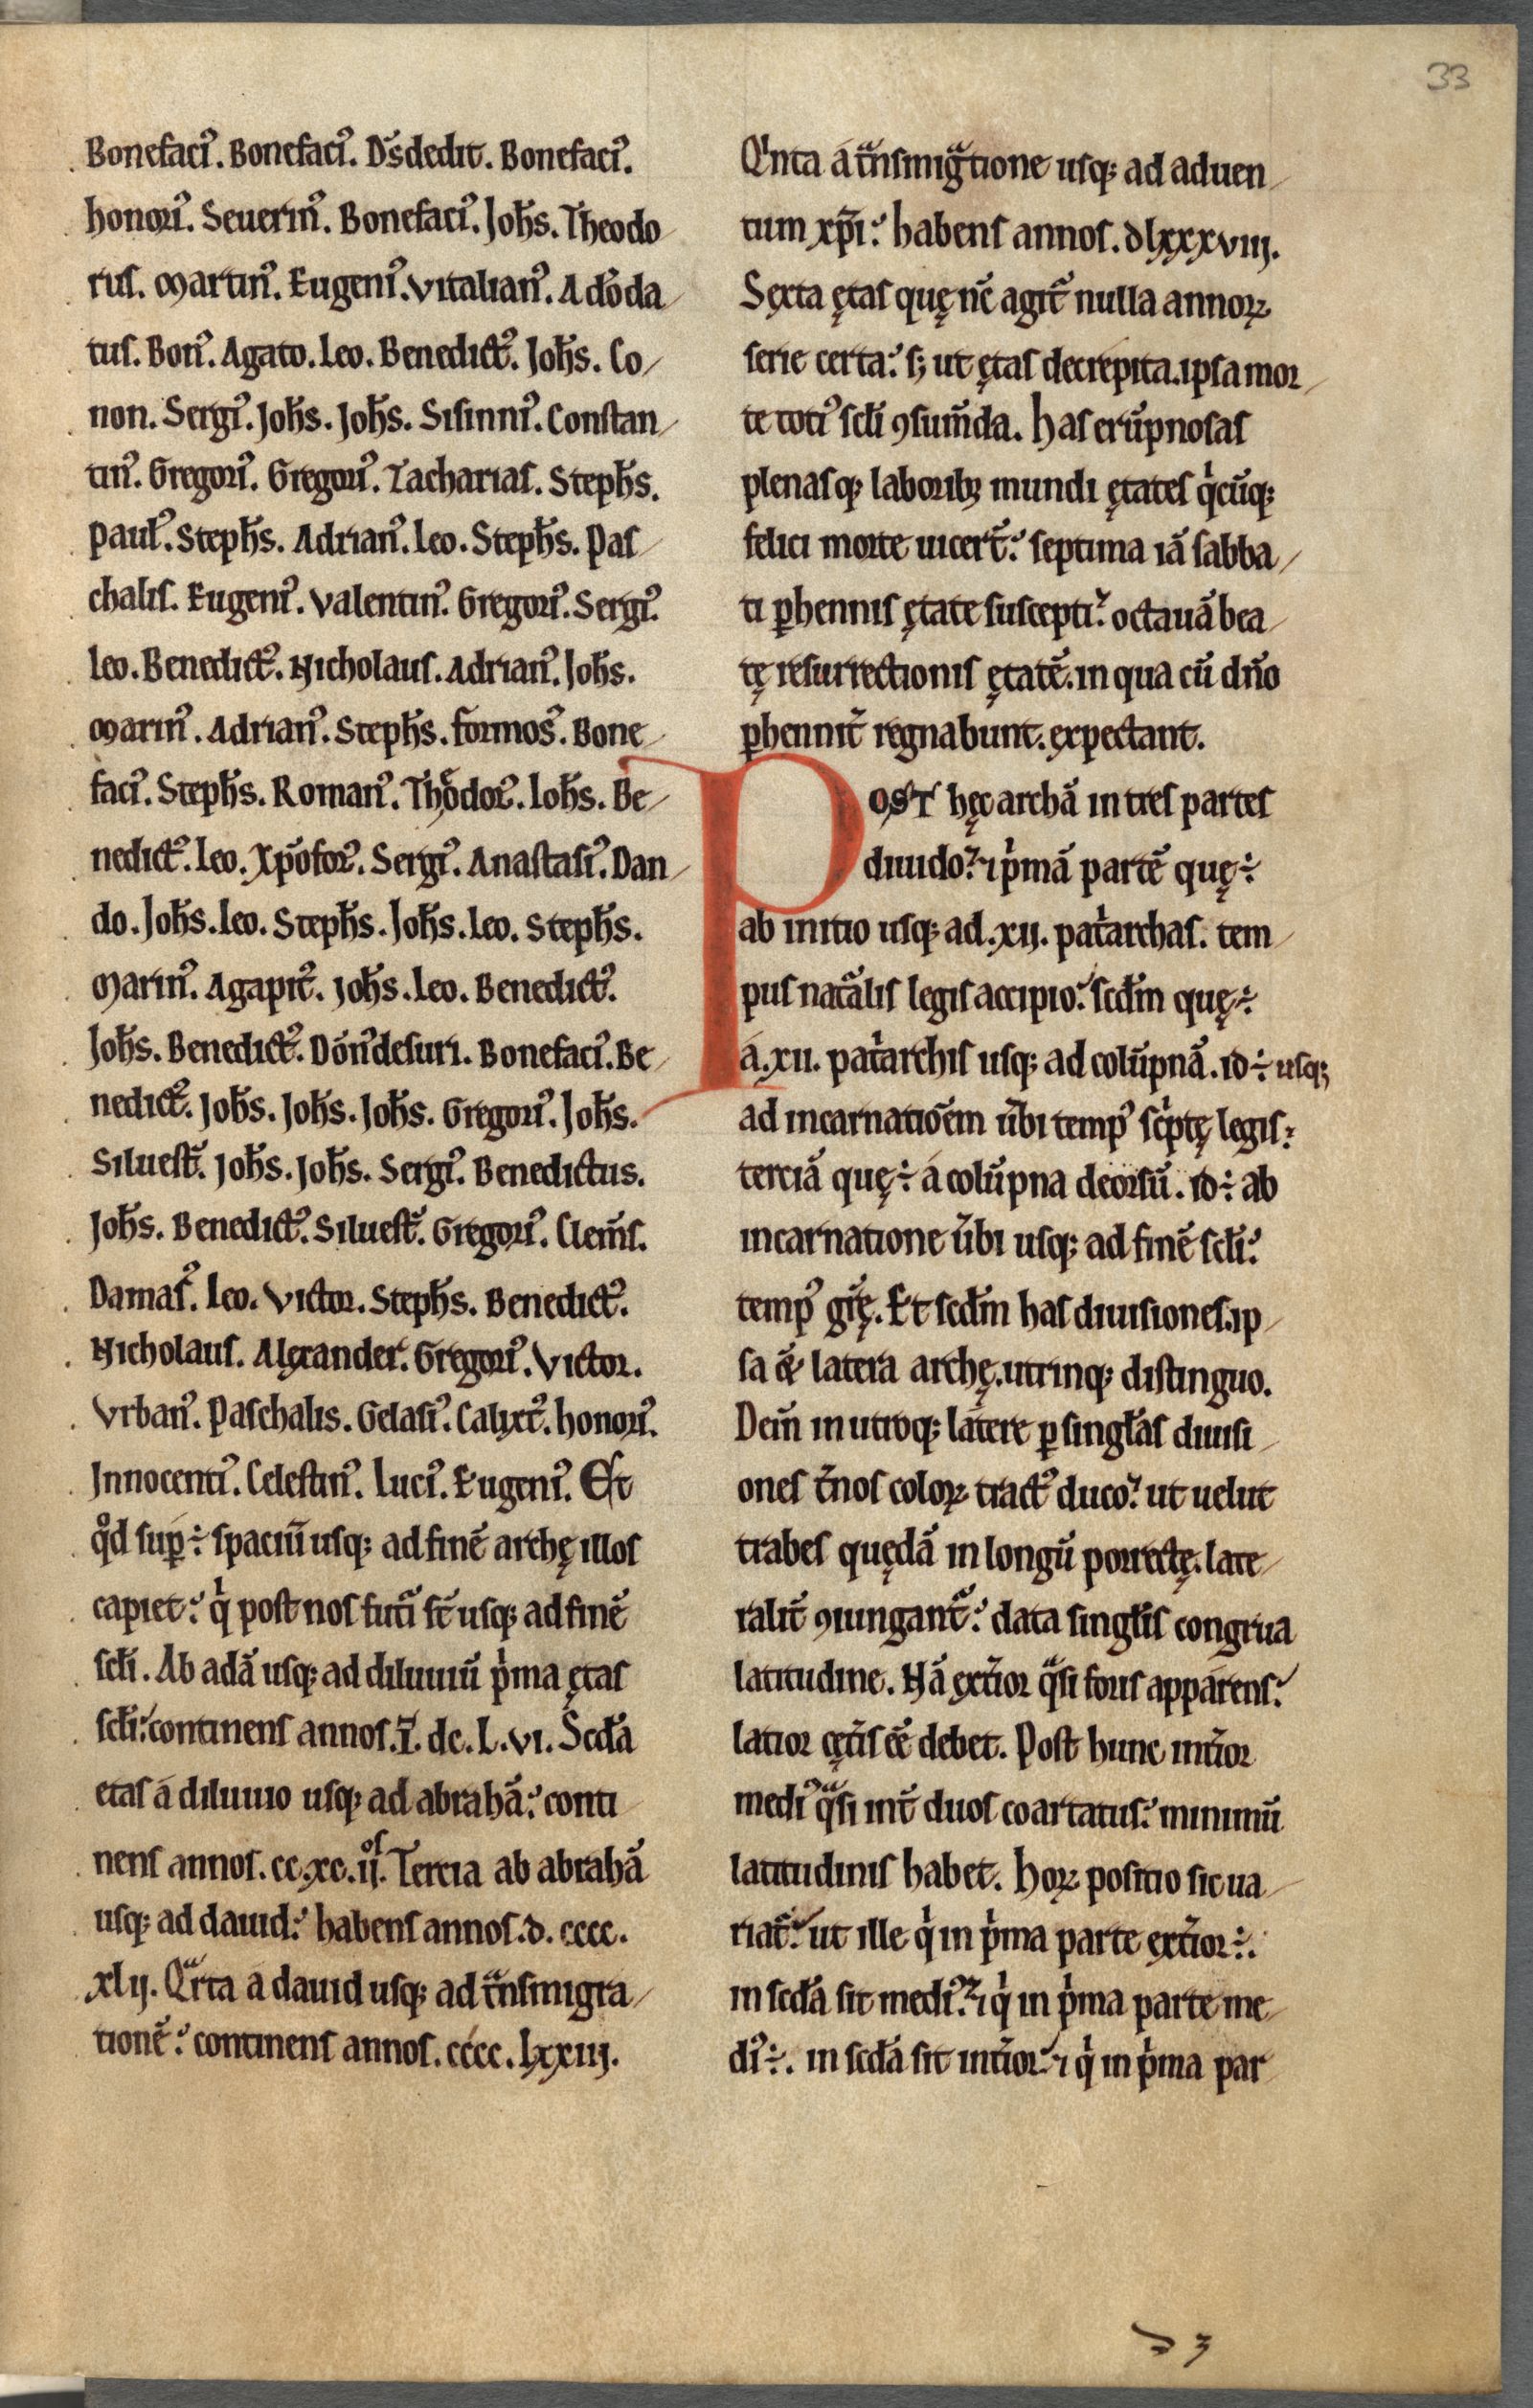 33
Bonefaciꝰ. Bonefaciꝰ. Ds̄dedit. Bonefaciꝰ.
honoriꝰ. Seuerinꝰ. Bonefaciꝰ. Joh̄s. Theodo
rus. Martinꝰ. Eugeniꝰ. Vitalianꝰ. Adōda
tus. Bonꝰ. Agato. Leo. Benedictꝰ. Joh̄s. Co
non. Sergiꝰ. Joh̄s. Joh̄s. Sisinniꝰ. Constan
tinꝰ. Gregoriꝰ. Gregoriꝰ. Zacharias. Steph̄s.
Paulꝰ. Steph̄s. Adrianꝰ. Leo. Steph̄s. Pas
chalis. Eugeniꝰ. Valentinꝰ. Gregoriꝰ. Sergiꝰ.
Leo. Benedictꝰ. Nicholaus. Adrianꝰ. Joh̄s.
Marinꝰ. Adrianꝰ. Steph̄s. Formosꝰ. Bone
faciꝰ. Steph̄s. Romanꝰ. Thͤodorꝰ. Ioh̄s. Be
nedictꝰ. Leo. Xp̄oforꝰ. Sergiꝰ. Anastasiꝰ. Dan
do. Joh̄s. Leo. Steph̄s. Joh̄s. Leo. Steph̄s.
Marinꝰ. Agapitꝰ. Joh̄s. Leo. Benedictꝰ.
Joh̄s. Benedictꝰ. Dōnꝰdesuri. Bonefaciꝰ. Be
nedictꝰ. Joh̄s. Joh̄s. Joh̄s. Gregoriꝰ. Joh̄s.
Siluest̄. Joh̄s. Joh̄s. Sergiꝰ. Benedictus.
Joh̄s. Benedictꝰ. Siluest̄. Gregoriꝰ. Clem̄s.
Damasꝰ. Leo. Victor. Steph̄s. Benedictꝰ.
Nicholaus. Alexander. Gregoriꝰ. Victor.
Vrbanꝰ. Paschalis. Gelasiꝰ. Calixtꝰ. honoriꝰ.
Innocentiꝰ. Celestinꝰ. Luciꝰ. Eugeniꝰ. Et
qͦd suꝑ÷ spaciū usq; ad finē archę illos
capiet: qⁱ post nos futͥ st̄ usq; ad finē
scl̄i. Ab adā usq; ad diluuiū pⁱma ętas
scl̄i: continens annos. I̅. dc. L. vi. Scd̄a
etas a diluuio usq; ad abrahā: conti
nens annos. cc. xc. ii.ͦˢ Tercia ab abrahā
usq; ad dauid: habens annos. d. cccc.
xlij. Qͣrta a dauid usq; ad tͣnsmigra
tionē: continens annos. cccc. lxxiij.
Qⁱnta a tͣnsmigͣtione usq; ad aduen
tum xp̄i: habens annos. dlxxxviij.
Sexta ętas quę nc̄ agit᷑ nulla annoꝝ
serie certa: s; ut ętas decrepita. ipsa mor
te totiꝰ scl̄i ꝯsum̄da. Has erūpnosas
plenasq; laborib; mundi ętates qⁱcūq;
felici morte uicer̄t: septima iā sabba
ti ꝑhennis ętate suscepti: octauā bea
tę resurrectionis ętatē. in qua cū dn̄o
ꝑhennit̄ regnabunt. expectant.
POST hęc archā in tres partes
diuido: ⁊ pⁱmā partē quę÷
ab initio usq; ad .xij. patⁱarchas. tem
pus natͣlis legis accipio: scd̄m quę÷
a .xii. patⁱarchis usq; ad colūpnā. id÷ usq;
ad incarnatiōem ūbi tempꝰ scⁱptę legis:
terciā quę÷ a colūpna deorsū. id÷ ab
incarnatione ūbi usq; ad finē scl̄i:
tempꝰ gr̄ę. Et scd̄m has diuisiones. ip
sa &̄ latera archę. utrinq; distinguo.
Dem̄ in utroq; latere ꝑ singl̄as diuisi
ones t̄nos coloꝝ tractꝰ duco: ut uelut
trabes quędā in longū porrectę. late
ralit̄ ꝯiungant᷑: data singl̄is congrua
latitudine. Nā ext̄ior qͣsi foris apparens:
latior cęt̄is ēē debet. Post hunc int̄ior
mediꝰ qͣsi int̄ duos coartatus: minimū
latitudinis habet. Hoꝝ positio sic ua
riat᷑: ut ille qⁱ in pⁱma parte ext̄ior÷.
in scd̄a sit mediꝰ: ⁊ qⁱ in pⁱma parte me
diꝰ÷. in scd̄a sit int̄ior: ⁊ qⁱ in pⁱma par